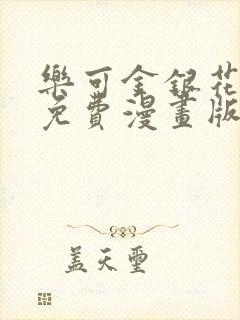 樂可金銀花
免費漫畫版
蓋天璽